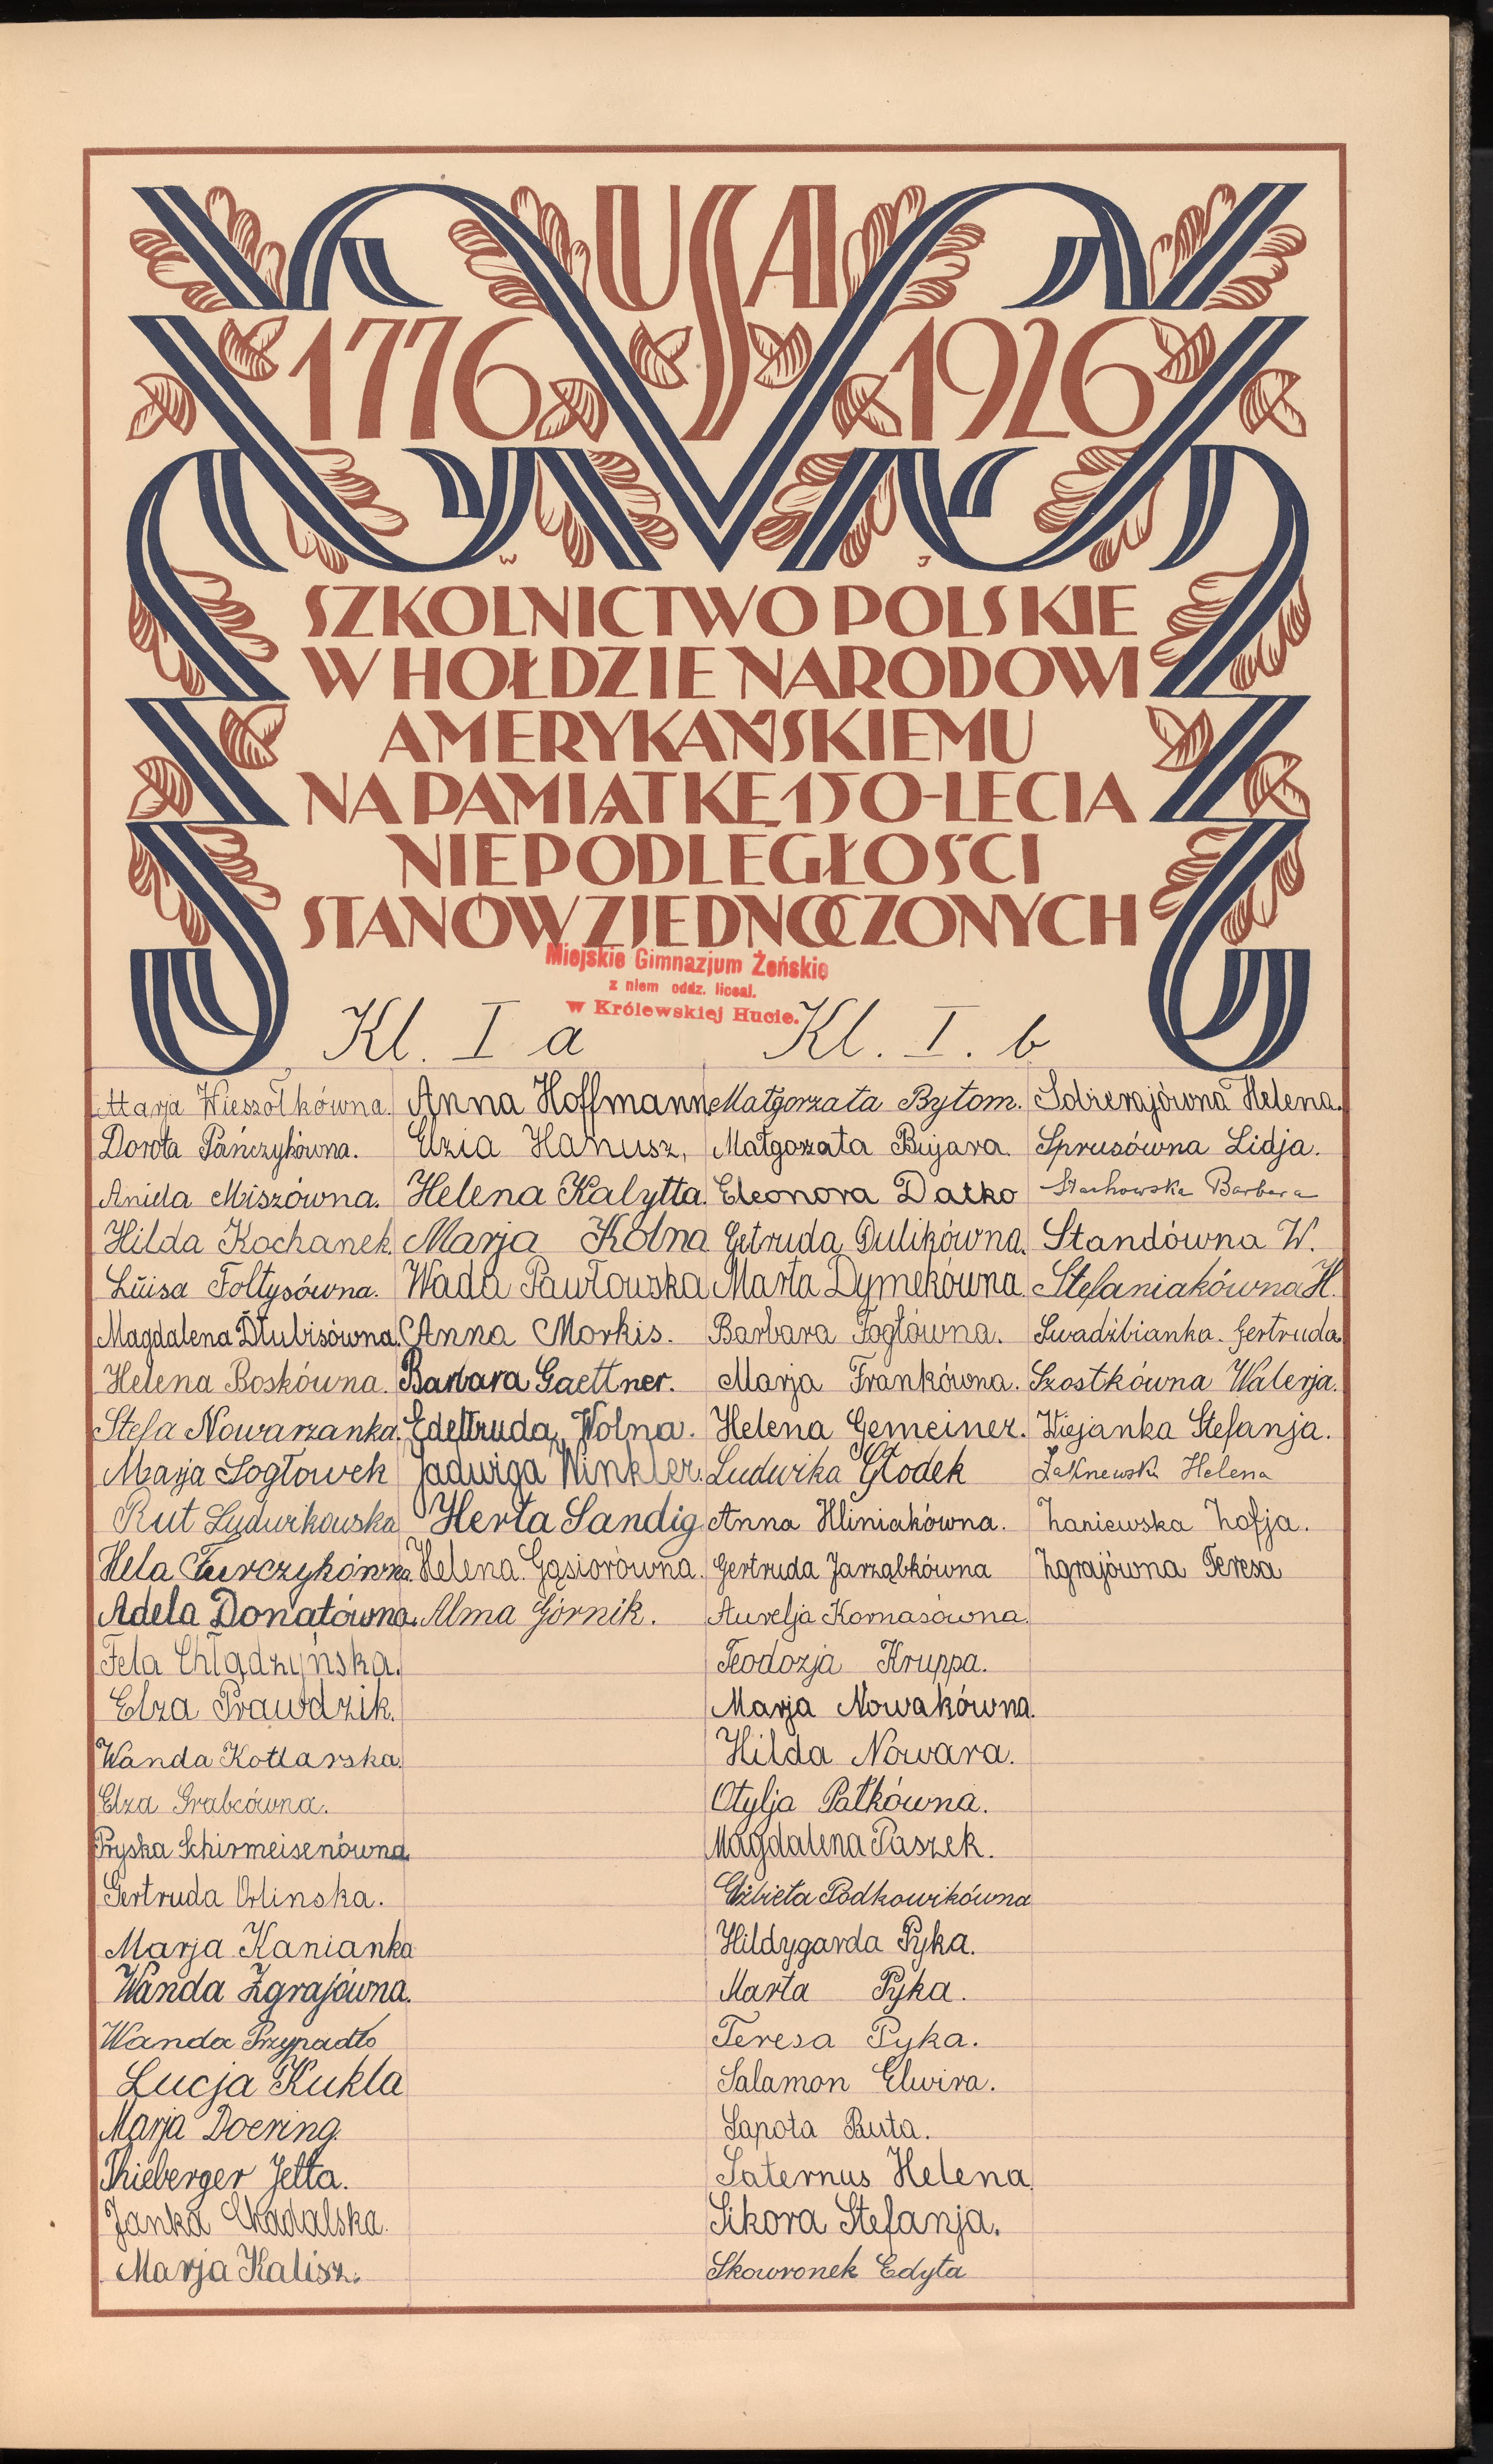 USA
1776 1926
W J
SZKOLNICTWO POLSKIE
W HOŁDZIE NARODOWI
AMERYKAŃSKIEMU
NA PAMIĄTKĘ 150-LECIA
NIEPODLEGŁOŚCI
STANÓW ZJEDNOCZONYCH
Miejskie Gimnazjum Żeńskie
z niem oddz. liceal.
w Królewskiej Hucie.
Kl. I a
Marja Wieszołkówna.
Dorota Pańczykówna.
Aniela Miszówna.
Hilda Kochanek.
Luisa Foltysówna.
Magdalena Dłubisówna.
Helena Boskówna.
Stefa Nowarzanka.
Marja Sogłowek
Rut Ludwikowska
Hela Turczykówna.
Adela Donatówna.
Fela Chlądzyńska.
Elza Prawdzik.
Wanda Kotlarska.
Elza Grabcówna.
Pryska Schirmeisenówna
Gertruda Orlinska.
Marja Kanianka
Wanda Zgrajówna.
Wanda Przypadło
Lucja Kukla
Marja Doering.
Thieberger Jetta.
Janka
Marja Kalisz.
Anna Hoffmann
Elzia Hanusz,
Helena Kalytta.
Marja Kolna
Wada Pawłowska
Anna Morkis.
Barbara Gaettner.
Edeltruda Wolna.
Jadwiga Winkler.
Herta Sandig
Helena Gąsiorówna.
Alma Górnik.
Kl. I. b
Małgorzata Bytom.
Małgorzata Bujara.
Eleonora Datko
Getruda Dulikówna.
Marta Dymekówna.
Barbara Fogłówna.
Marja Frankówna.
Helena Gemeiner.
Ludwika Głodek
Anna Hliniakówna.
Gertruda Jarząbkówna
Aurelja Kornasówna.
Teodozja Kruppa.
Marja Nowakówna.
Hilda Nowara.
Otylja Patkówna.
Magdalena Paszek.
Elżbieta Podkowikówna
Hildygarda Pyka.
Marta Pyka.
Teresa Pyka.
Salamon Elwira.
Sapota Ruta.
Saternus Helena
Sikora Stefanja.
Skowronek Edyta
Helena.
Sprusówna Lidja.
Stachowska Barbara
Standówna W.
Stefaniakówna H.
Swadźbianka. Gertruda.
Szostkówna Walerja.
Wiejanka Stefanja.
Helena
Zaniewska Zofja.
Zgrajówna Teresa